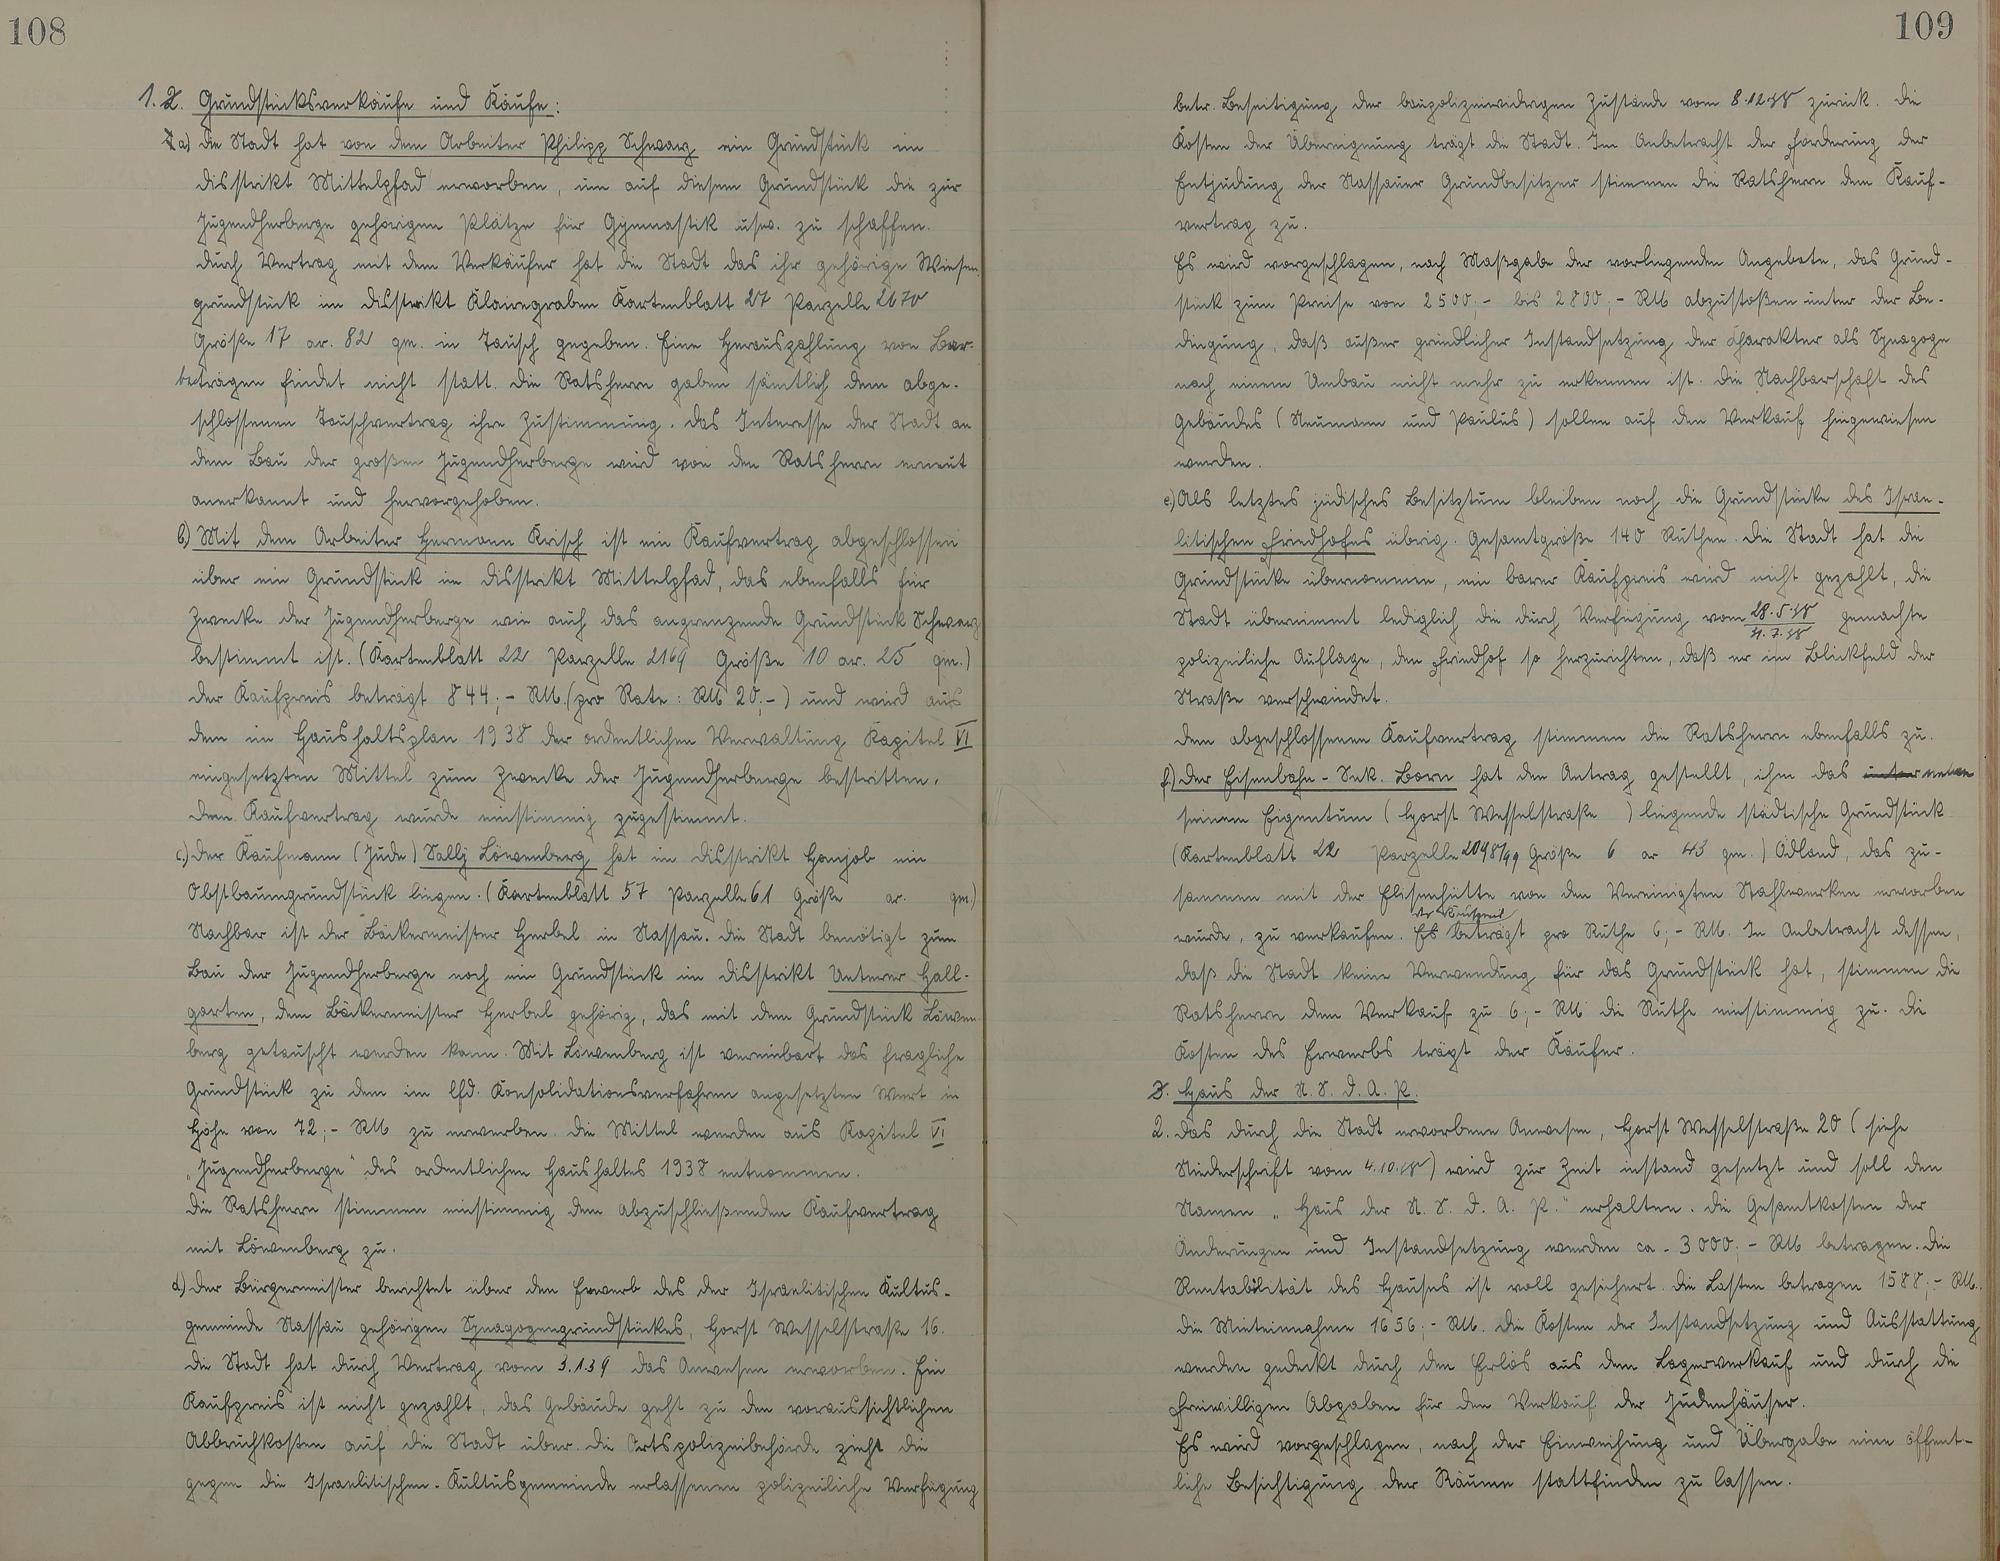 108
1. 2. Grundstücksverkäufe und Käufe:
a) Die Stadt hat von dem Arbeiter Philipp Schwarz ein Grundstück im
Disstrikt Mittelpfad erworben, um auf diesem Grundstück die zur
Jugendherberge gehörigen Plätze für Gymnastik usw. zu schaffen.
Durch Vertrag mit dem Verkäufer hat die Stadt das ihr gehörige Wiesen-
grundstück im Disstrikt Klairegraben Kartenblatt 27 Parzelle 2670
Größe 17 ar. 82 qm. in Tausch gegeben. Eine Herauszahlung von Bar-
beträgen findet nicht statt. Die Ratsherrn gaben sämtlich dem abge-
schlossenen Tauschvertrag ihre Zustimmung. Das Interesse der Stadt an
dem Bau der großen Jugendherberge wird von den Ratsherrn erneut
anerkannt und hervorgehoben.
b.) Mit dem Arbeiter Hermann Krisch ist ein Kaufvertrag abgeschlossen
über ein Grundstück im Disstrikt Mittelpfad, das ebenfalls für
Zwecke der Jugendherberge wie auch das angrenzende Grundstück Schwarz
bestimmt ist. (Kartenblatt 22 Parzelle 2169 Größe 10 ar. 25 qm.)
Der Kaufpreis beträgt 844,- RM. (pro Rute: RM 20,-) und wird aus
dem im Haushaltsplan 1938 der ordentlichen Verwaltung Kapitel VI
eingesetzten Mittel zum Zwecke der Jugendherberge bestritten.
Dem Kaufvertrag wurde einstimmig zugestimmt.
c.) Der Kaufmann (Jude) Sally Löwenberg hat im Disstrikt Hanjob ein
Obstbaumgrundstück liegen. (Kartenblatt 57 Parzelle 61 Größe ar. qm.)
Nachbar ist der Bäckermeister Herbel in Nassau. Die Stadt benötigt zum
Bau der Jugendherberge noch ein Grundstück im Disstrikt Unterer Hall-
garten, dem Bäckermeister Herbel gehörig, das mit dem Grundstück Löwen-
berg getauscht werden kann. Mit Löwenberg ist vereinbart das fragliche
Grundstück zu dem im lfd. Konsolidationsverfahren angesetzten Wert in
Höhe von 72,- RM zu erwerben. Die Mittel werden aus Kapitel VI
„Jugendherberge“ des ordentlichen Haushaltes 1938 entnommen.
Die Ratsherrn stimmen einstimmig dem abzuschließenden Kaufvertrag
mit Löwenberg zu.
d.) Der Bürgermeister berichtet über den Erwerb des der Israelitischen Kultus-
gemeinde Nassau gehörigen Synagogengrundstückes, Horst Wesselstraße 16.
Die Stadt hat durch Vertrag vom 3.1.39 das Anwesen erworben. Ein
Kaufpreis ist nicht gezahlt, das Gebäude geht zu den voraussichtlichen
Abbruchkosten auf die Stadt über. Die Ortspolizeibehörde zieht die
gegen die Israelitischen-Kultusgemeinde erlassenen polizeiliche Verfügung
109
betr. Beseitigung der baupolizeiwidrigen Zustände vom 8.12.38 zurück. Die
Kosten der Übereignung trägt die Stadt. Im Anbetracht der Förderung der
Entjudung der Nassauer Grundbesitzer stimmen die Ratsherrn dem Kauf-
vertrag zu.
Es wird vorgeschlagen, nach Maßgabe der vorliegenden Angebote, das Grund-
stück zum Preise von 2500,- bis 2800,- RM abzustoßen unter der Be-
dingung, daß außer gründlicher Instandsetzung der Charakter als Synagoge
nach einem Umbau nicht mehr zu erkennen ist. Die Nachbarschaft des
Gebäudes (Neumann und Paulus) sollen auf den Verkauf hingewiesen
werden.
e.) Als letztes jüdisches Besitztum bleiben noch die Grundstücke des Israe-
litischen Friedhofes übrig. Gesamtgröße 140 Ruthen. Die Stadt hat die
Grundstücke übernommen, ein barer Kaufpreis wird nicht gezahlt, die
Stadt übernimmt lediglich die durch Verfügung vom 28.5.38 gemachte
polizeiliche Auflage, den Friedhof so herzurichten, daß er im Blickfeld der
Straße verschwindet.
Dem abgeschlossenen Kaufvertrag stimmen die Ratsherrn ebenfalls zu.
f.) Der Eisenbahn-Sek. Born hat den Antrag gestellt, ihm das unter neben
seinem Eigentum (Horst Wesselstraße ) liegende städtische Grundstück
(Kartenblatt 22 Parzelle 2048/99 Größe 6 ar 43 qm.) Ödland, das zu-
sammen mit der Elisenhütte von den Vereinigten Stahlwerken erworben
wurde, zu verkaufen. Der Kaufpreis beträgt pro Ruthe 6,- RM. In Anbetracht dessen,
daß die Stadt keine Verwendung für das Grundstück hat, stimmen die
Ratsherrn dem Verkauf zu 6,- RM die Ruthe einstimmig zu. Die
Kosten des Erwerbs trägt der Käufer.
3. Haus der N.S.D.A.P.
2. Das durch die Stadt erworbene Anwesen, Horst Wesselstraße 20 (siehe
Niederschrift vom 4.10.38) wird zur Zeit instand gesetzt und soll den
Namen „Haus der N.S.D.A.P.“ erhalten. Die Gesamtkosten der
Änderungen und Instandsetzung werden ca. 3000,- RM betragen. Die
Rentabilität des Hauses ist voll gesichert. Die Lasten betragen 1588,- RM.,
die Mieteinnahme 1656,- RM. Die Kosten der Instandsetzung und Ausstattung
werden gedeckt durch den Erlös aus dem Lagerverkauf und durch die
freiwilligen Abgaben für den Verkauf der Judenhäuser.
Es wird vorgeschlagen, nach der Einweihung und Übergabe eine öffent-
liche Besichtigung der Räume stattfinden zu lassen.